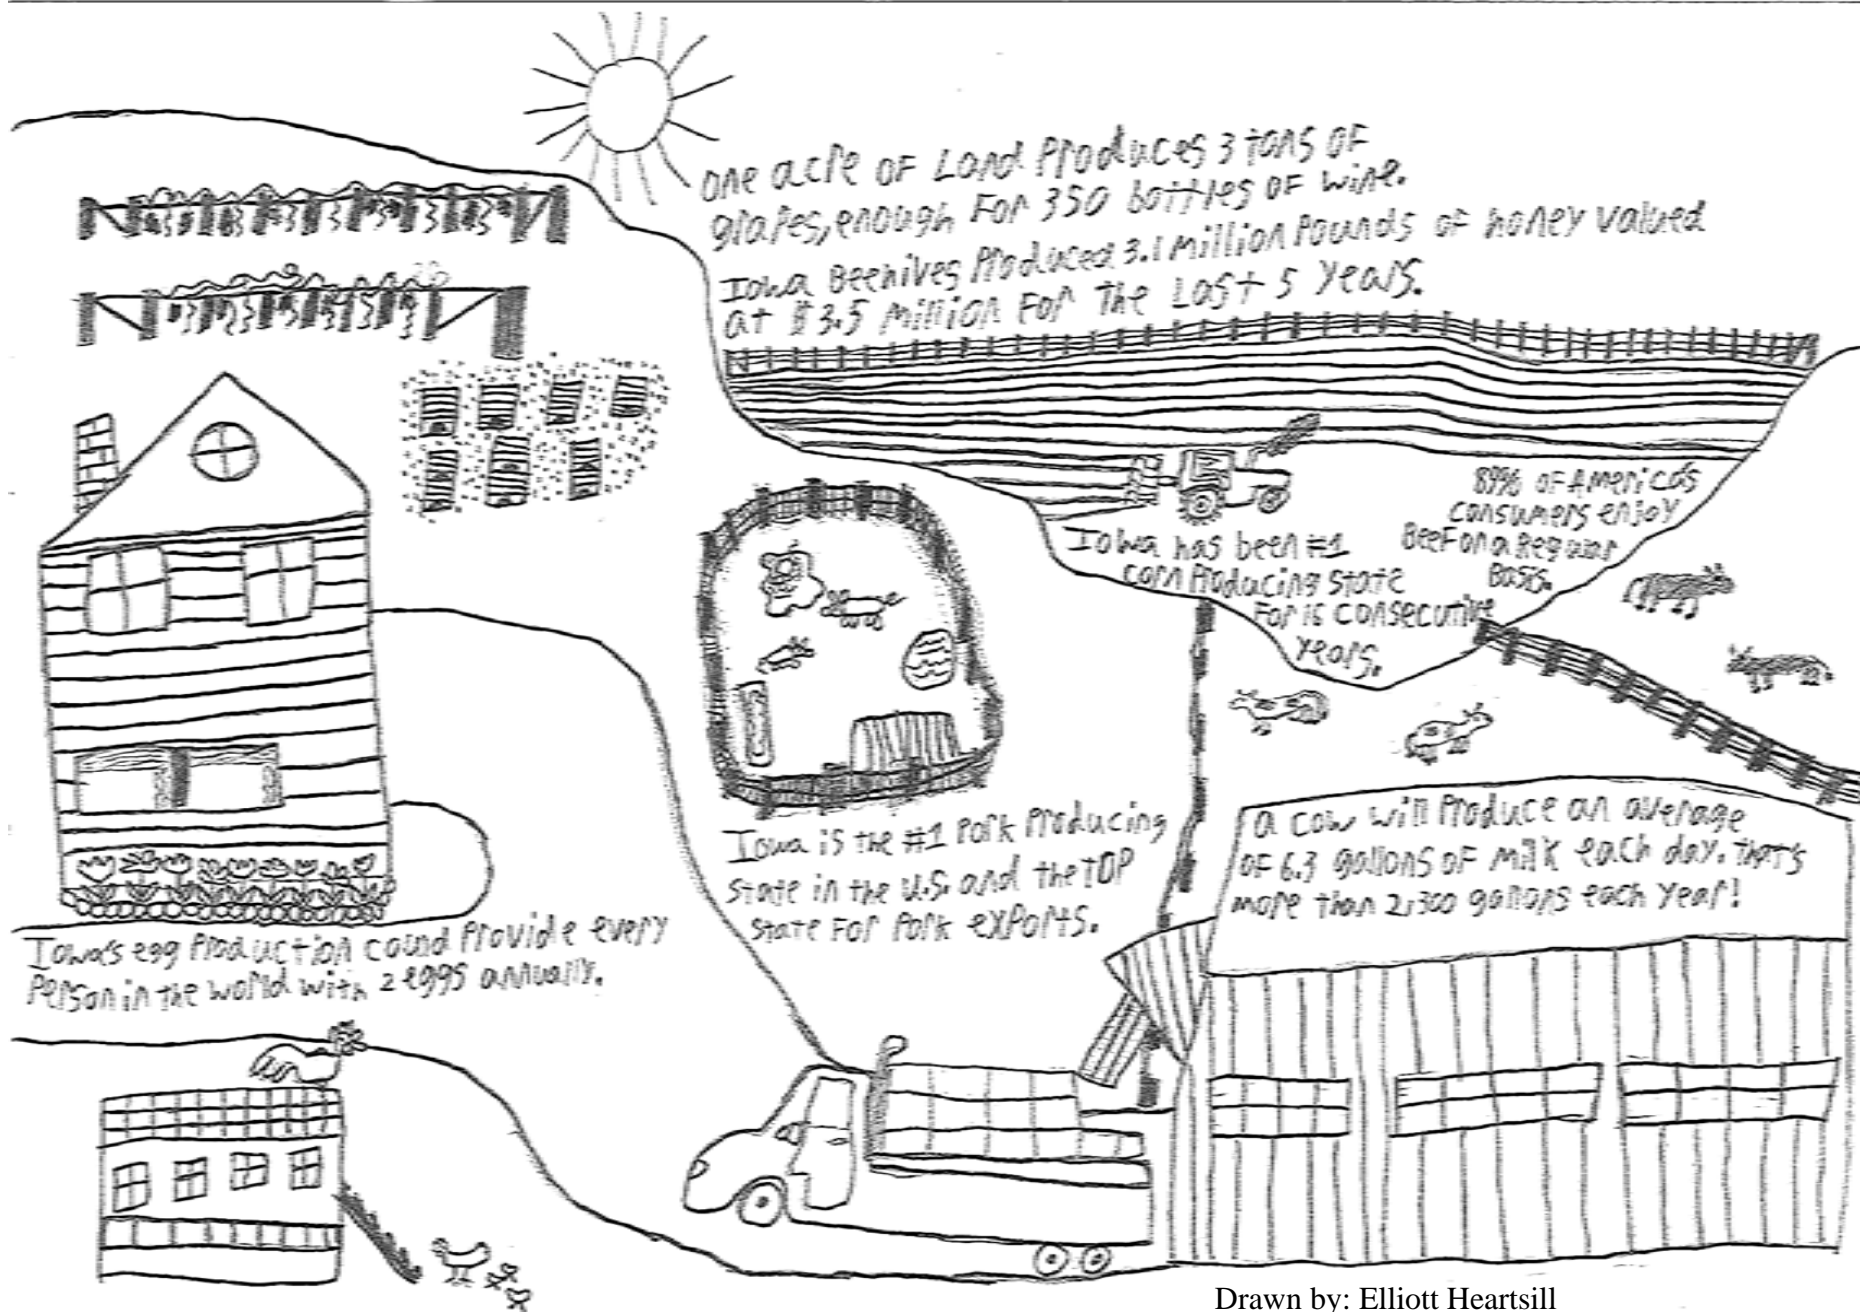 One acre of Land Produces 3 tons of
grapes, enough For 350 bottles of wine.
Iowa Beehives Produced 3.1 Million Pounds of honey valued
at $3.5 Million For The Last 5 Years.
89% of America's
consumers enjoy
Beef on a Regular
Basis.
Iowa has been #1
corn Producing state
For 16 consecutive
years.
Iowa is the #1 Pork Producing
state in the U.S. and the TOP
state For Pork exports.
A cow will Produce an average
of 6.3 gallons of Milk each day. That's
more than 2,300 gallons each year!
Iowa's egg Production could Provide every
Person in the world with 2 eggs annually.
Drawn by: Elliott Heartsill